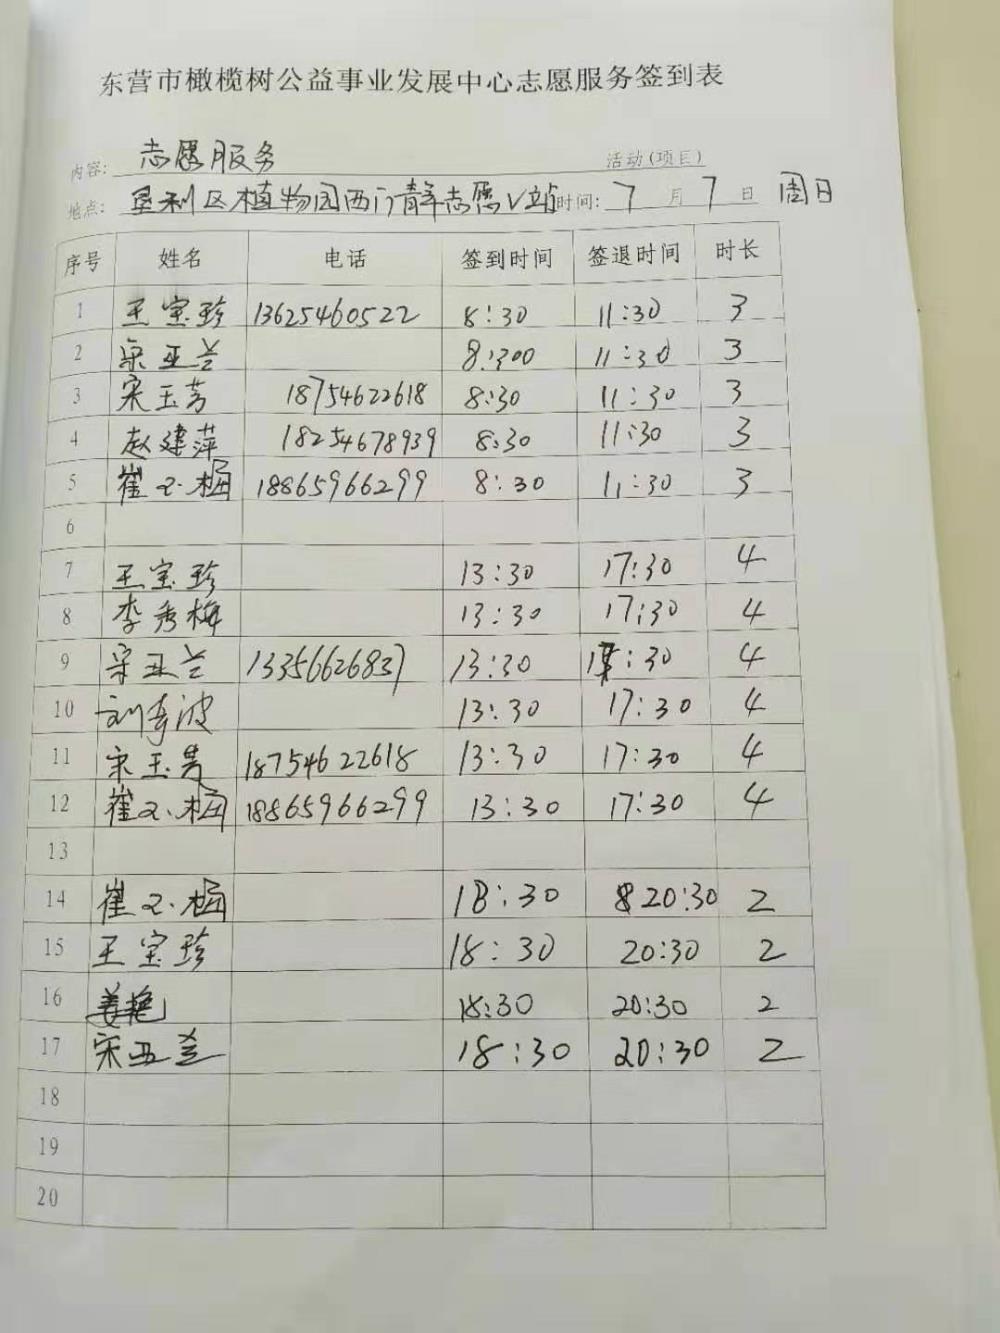 东营市橄榄树公益事业发展中心志愿服务签到表
内容: 志愿服务 活动(项目)
地点: 垦利区植物园西门青年志愿V站 时间: 7 月 7 日 周日
序号 姓名 电话 签到时间 签退时间 时长
1 王宝珍 13625460522 8:30 11:30 3
2 宋亚兰 8:300 11:30 3
3 宋玉芳 18754622618 8:30 11:30 3
4 赵建萍 18254678939 8:30 11:30 3
5 崔 梅 18865966299 8:30 11:30 3
6
7 王宝珍 13:30 17:30 4
8 李秀梅 13:30 17:30 4
9 宋亚兰 13356626837 13:30 17:30 4
10 刘 波 13:30 17:30 4
11 宋玉芳 18754622618 13:30 17:30 4
12 崔 梅 18865966299 13:30 17:30 4
13
14 崔 梅 18:30 20:30 2
15 王宝珍 18:30 20:30 2
16 姜艳 18:30 20:30 2
17 宋亚兰 18:30 20:30 2
18
19
20